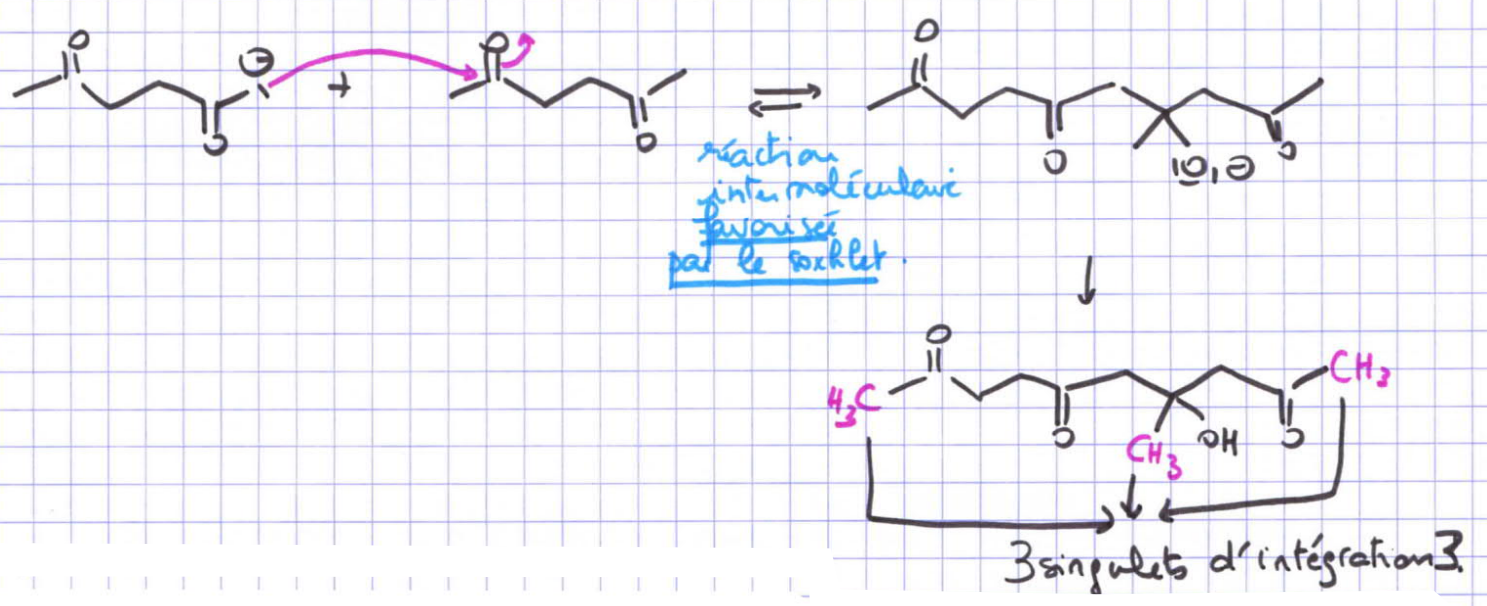 O
O
⊖
+
O
O
O
O
|O|⊖
O
réaction
intermoléculaire
favorisée
par le soxhlet.
O
H₃C
O
CH₃
OH
O
CH₃
3 singulets d'intégration 3.